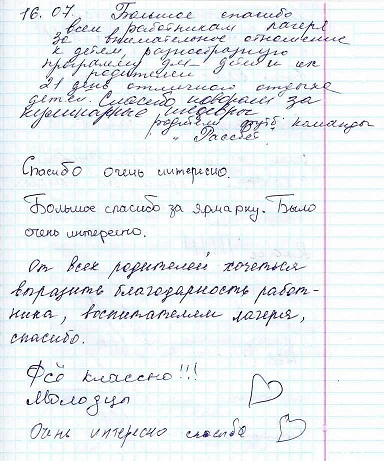 16.07. Большое спасибо
всем работникам лагеря
за внимательное отношение
к детям, разнообразную
программу для детей и их
родителей
21 день отличного отдыха
детей. Спасибо поварам за
кулинарные шедевры
родители команды
"Рассвет"
Спасибо очень интересно.
Большое спасибо за ярмарку. Было
очень интересно.
От всех родителей хочеться
выразить благодарность работ-
ника, воспитателям лагеря,
спасибо.
Фсё классно!!!
Молодцы
Очень интересно спасибо